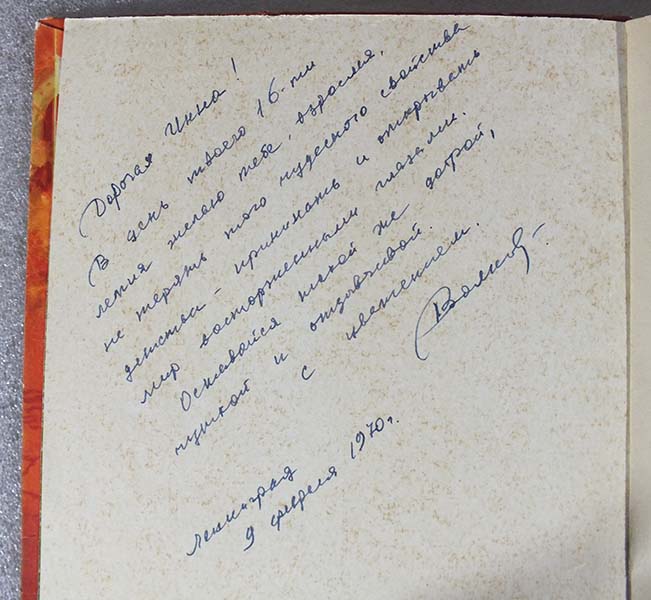 Дорогая Инна!
В день твоего 16-ти
летия желаю тебе, взрослея,
не терять того чудесного свойства
детства – принимать и открывать
мир восторженными глазами.
Оставайся такой же доброй,
чуткой и отзывчивой.
с уважением.
Волков
Ленинград
9 февраля 1970 г.